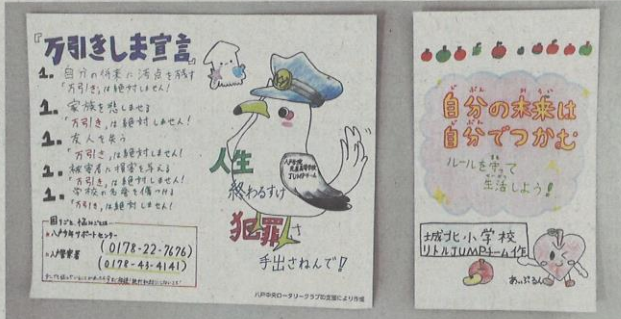 『万引きしま宣言』
1. 自分の将来に汚点を残す
「万引き」は絶対しません!
1. 家族を悲しませる
「万引き」は絶対しません!
1. 友人を失う
「万引き」は絶対しません!
1. 被害者に損害を与える
「万引き」は絶対しません!
1. 学校の名誉を傷つける
「万引き」は絶対しません!
八戸少年サポートセンター
(0178-22-7676)
八戸警察署
(0178-43-4141)
JUMPチーム
人生
終わるすけ
犯罪さ
手出さねんで!!
八戸中央ロータリークラブの支援により作成
自分の未来は
自分でつかむ
ルールを守って
生活しよう!
城北小学校
リトルJUMPチーム作
あっぷるん